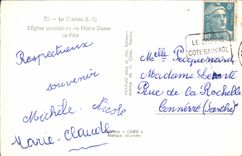 70 - Le Croisic (L.-I.)
L'Église paroissiale de Notre-Dame-
de-Pitié
Respectueux
souvenir
Michèle. Nicole
Marie. Claude
"CARY"
8F
LE
COTE SAUVAGE
Melle Pecquenard
Madame
Rue de la Rochelle
Connerré (Sarthe)